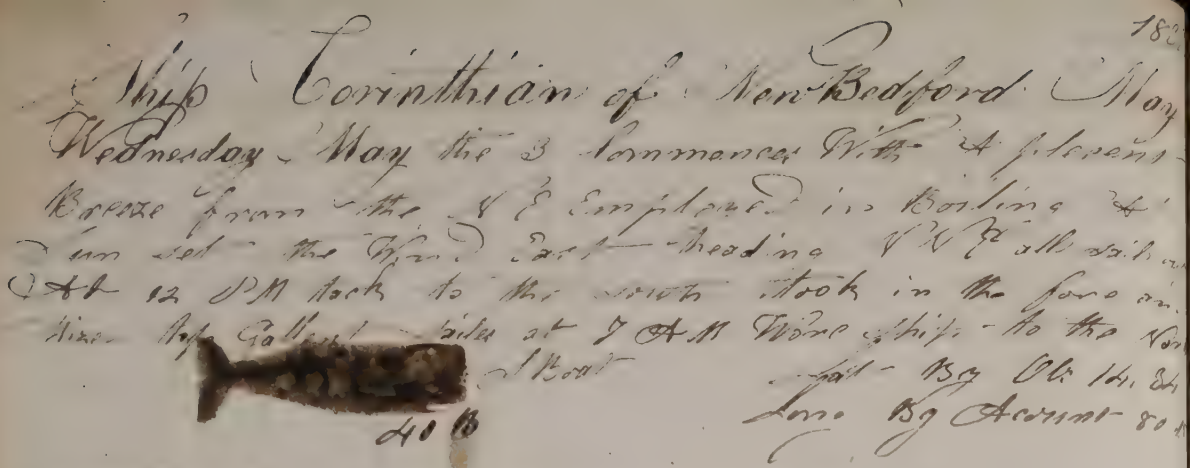 182
Ship Corinthian of New Bedford May
Wednesday May the 3 Commences With A pleasant
Breeze from the N E Employed in Boiling At
Sun set the Wind East heading N N E all sail
At 12 PM tack to the south took in the fore
Mizen top Gallent sailes at 7 AM Wore ship to the
Boat Lat By Ob 14,34
Long By Acount 80
40 B